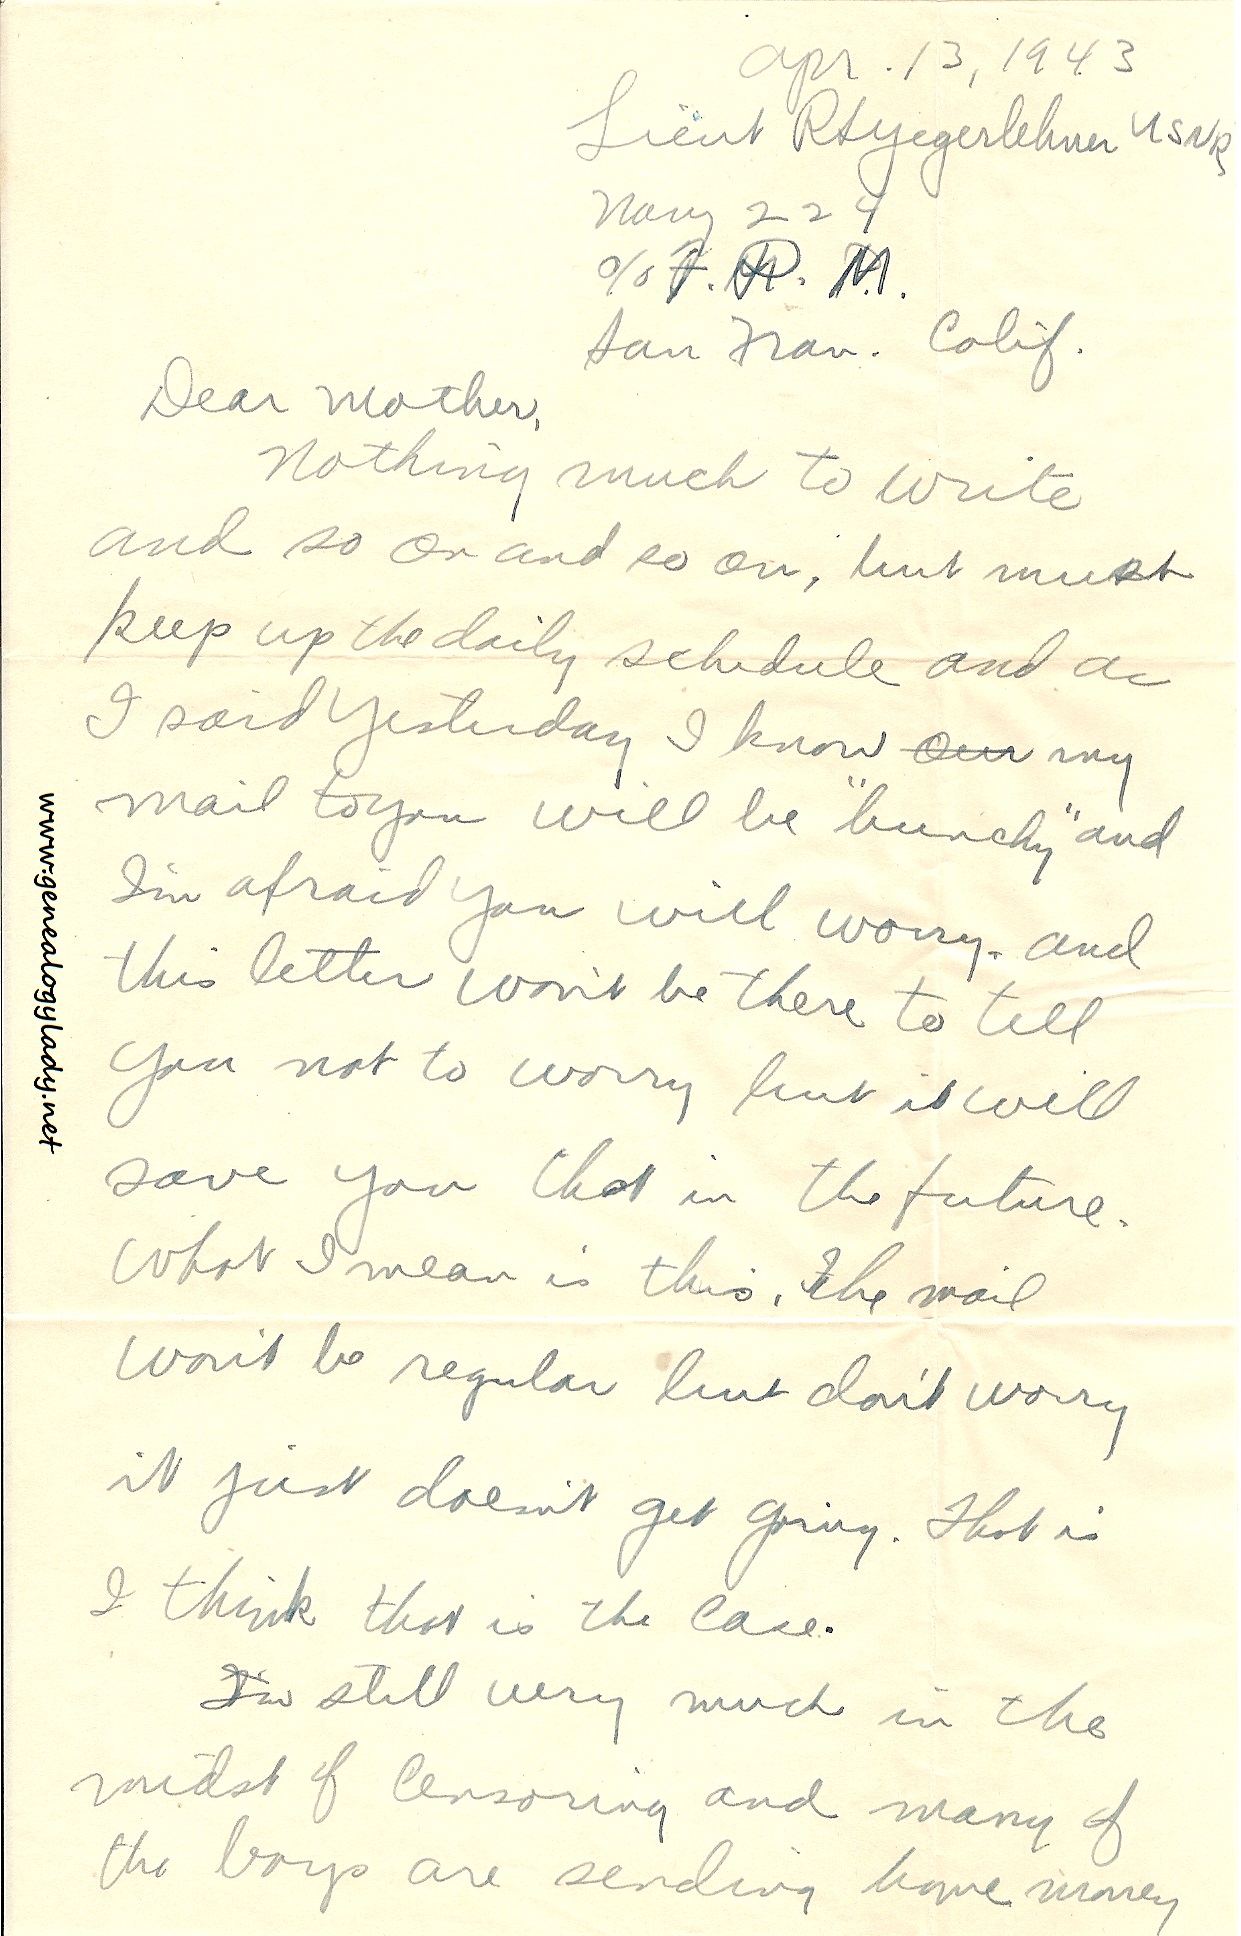 Apr. 13, 1943
Lieut RHYegerlehner USNR
Navy 224
c/o F. R. M.
San Fran. Calif.
Dear Mother,
Nothing much to write
and so on and so on, but must
keep up the daily schedule and as
I said yesterday I know our my
mail to you will be "bunchy" and
I'm afraid you will worry. and
this letter won't be there to tell
you not to worry but it will
save you that in the future.
What I mean is this. The mail
won't be regular but don't worry
it just doesn't get going. That is
I think that is the case.
I'm still very much in the
midst of censoring and many of
the boys are sending home money
www.genealogylady.net